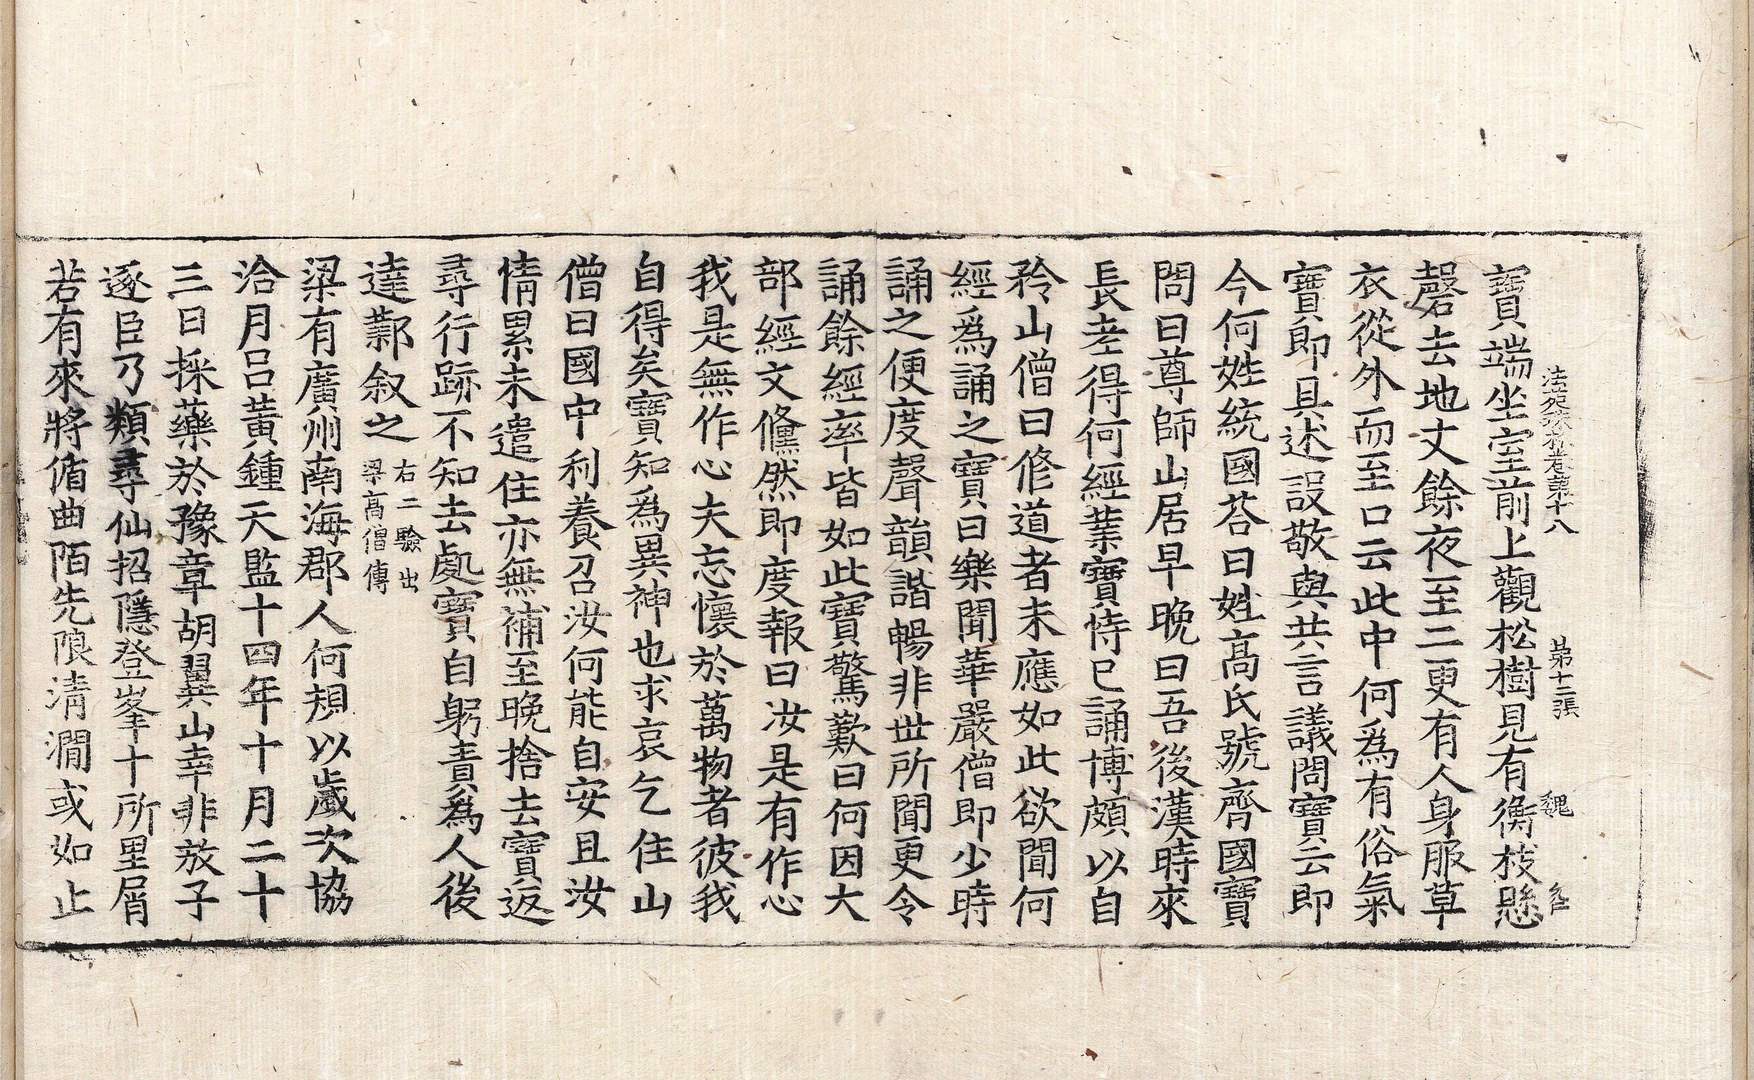 法苑珠林卷第十八 第十二張 魏
寶端坐室前上觀松樹見有衡枝懸
磬去地丈餘夜至二更有人身服草
衣從外而至口云此中何爲有俗氣
寶即具述設敬與共言議問寶云即
今何姓統國荅曰姓高氏號齊國寶
問曰尊師山居早晚曰吾後漢時來
長老得何經業寶恃已誦博頗以自
矜山僧曰修道者未應如此欲聞何
經爲誦之寶曰樂聞華嚴僧即少時
誦之便度聲韻諧暢非世所聞更令
誦餘經率皆如此寶驚歎曰何因大
部經文儵然即度報曰汝是有作心
我是無作心夫忘懷於萬物者彼我
自得矣寶知爲異神也求哀乞住山
僧曰國中利養召汝何能自安且汝
情累未遣住亦無補至晚捨去寶返
尋行跡不知去處寶自躬責爲人後
達鄴叙之右二驗出梁高僧傳
梁有廣州南海郡人何規以歲次協
洽月吕黃鍾天監十四年十月二十
三日採藥於豫章胡翼山幸非放子
逐臣乃類尋仙招隱登峯十所里屑
若有來將循曲陌先限清澗或如止